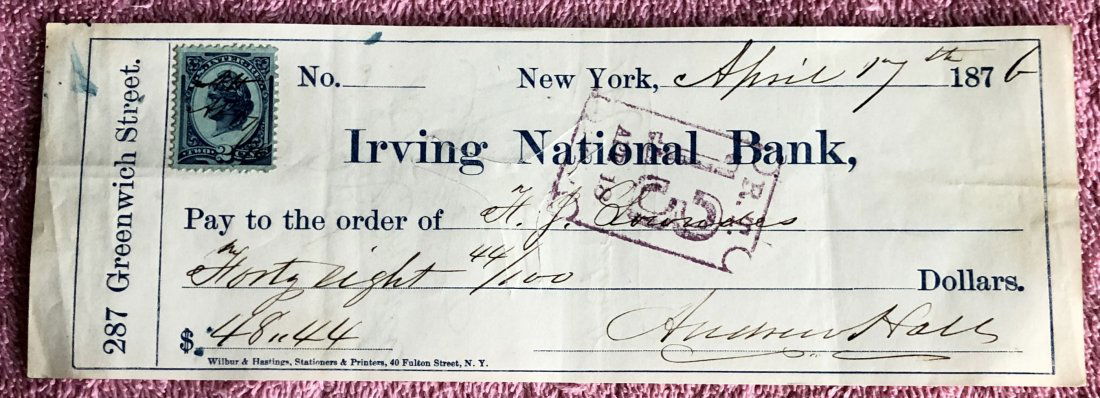 287 Greenwich Street.
TWO 2
No. New York, April 17th 1876
Irving National Bank,
Pay to the order of H. J.
Forty eight 44/100 Dollars.
$ 48.44
Andrew Hall
Wilbur & Hastings, Stationers & Printers, 40 Fulton Street, N. Y.